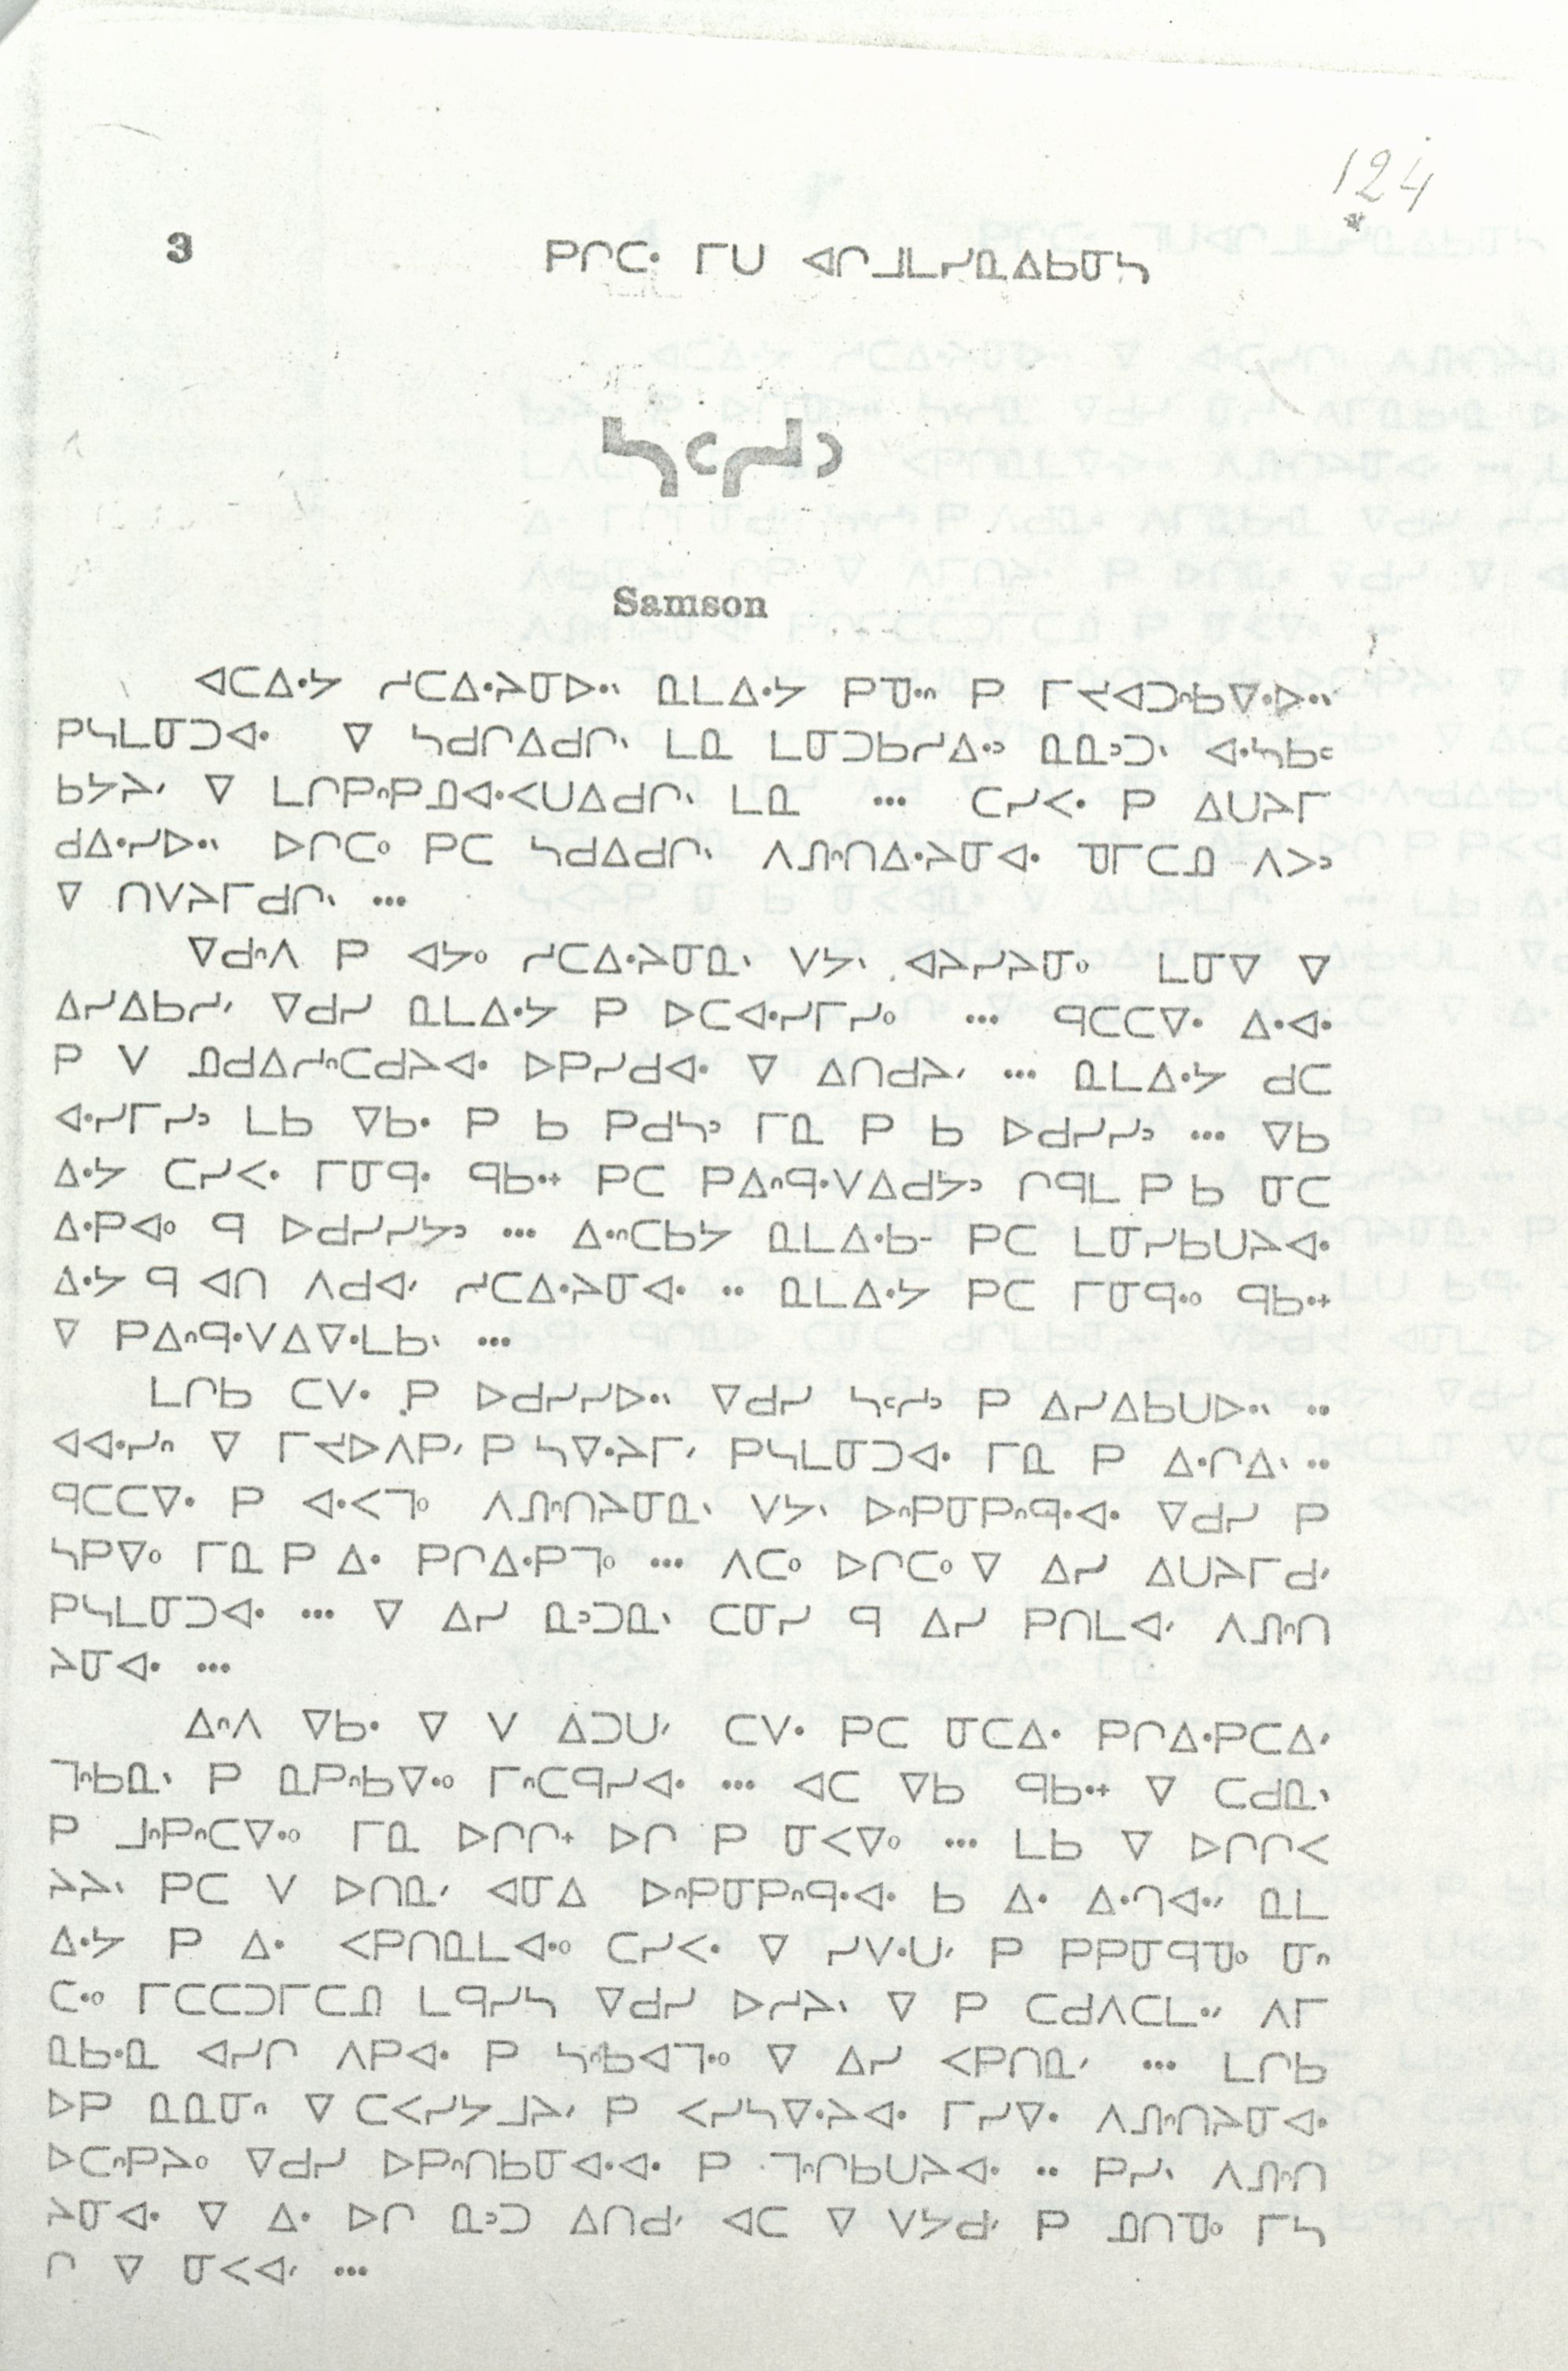 124
3 ᑭᒋᑕᐧ ᒥᑌ ᐊᒋᒧᒪᓯᓇᐃᑲᓂᓴ
ᓴᑦᓱᐣ
Samson
ᐊᑕᐃᐧᔭ ᓯᑕᐃᐧᔨᓂᐅᐧᐠ ᓇᒪᐃᐧᔭ ᑭᓀᐧᐢ ᑭ ᒥᔪᐊᑐᐢᑲᐍᐅᐧᐠ
ᑭᓴᒪᓂᑐᐊᐧ ᐁ ᓴᑯᒋᐃᑯᒋᐠ ᒪᓇ ᒪᓂᑐᑲᓯᐃᐧᐣ ᓇᓇᐣᑐᐠ ᐊᐧᓴᑲᑊ
ᑲᔭᔨᐟ ᐁ ᒪᒋᑭᐢᑭᓄᐊᐧᐸᑌᐃᑯᒋᐠ ᒪᓇ ••• ᑕᓯᐸᐧ ᑭ ᐃᑌᔨᒥ
ᑯᐃᐧᓯᐅᐧᐠ ᐅᒋᑕᐤ ᑭᑕ ᓴᑯᐃᑯᒋᐠ ᐱᓕᐢᑎᐃᐧᔨᓂᐊᐧ ᓀᒥᑕᓄ ᐱᐳᐣ
ᐁ ᑎᐯᔨᒥᑯᒋᐠ •••
ᐁᑯᐢᐱ ᑭ ᐊᔭᐤ ᓯᑕᐃᐧᔨᓂᓇᐠ ᐯᔭᐠ ᐊᔨᓯᔨᓂᐤ ᒪᓂᐁ ᐁ
ᐃᓯᐃᑲᓱᐟ ᐁᑯᓯ ᓇᒪᐃᐧᔭ ᑭ ᐅᑕᐊᐧᓯᒥᓯᐤ ••• ᑫᑕᑕᐁᐧ ᐃᐧᐊᐧ
ᑭ ᐯ ᓄᑯᐃᓱᐢᑕᑯᔨᐊᐧ ᐅᑭᓯᑯᐊᐧ ᐁ ᐃᑎᑯᔨᐟ ••• ᓇᒪᐃᐧᔭ ᑯᑕ
ᐊᐧᓯᒥᓯᐣ ᒪᑲ ᐁᑲᐧ ᑭ ᑲ ᑭᑯᓴᐣ ᒥᓇ ᑭ ᑲ ᐅᑯᓯᓯᐣ ••• ᐁᑲ
ᐃᐧᔭ ᑕᓯᐸᐧ ᒥᓂᑫᐧ ᑫᑲᐧᐩ ᑭᑕ ᑭᐃᐢᑫᐧᐯᐃᑯᔭᐣ ᒋᑫᒪ ᑭ ᑲ ᓂᑕ
ᐃᐧᑭᐊᐤ ᑫ ᐅᑯᓯᓯᔭᐣ ••• ᐃᐧᐢᑕᑲᔭ ᓇᒪᐃᐧᑲᐨ ᑭᑕ ᒪᓂᓯᑲᑌᔨᐊᐧ
ᐃᐧᔭ ᑫ ᐊᑎ ᐱᑯᐊᐟ ᓯᑕᐃᐧᔨᓂᐊᐧ •• ᓇᒪᐃᐧᔭ ᑭᑕ ᒥᓂᑫᐧᐤ ᑫᑲᐧᐩ
ᐁ ᑭᐃᐢᑫᐧᐯᐃᐁᐧᒪᑲᐠ •••
ᒪᒋᑲ ᑕᐯᐧ ᑭ ᐅᑯᓯᓯᐅᐧᐠ ᐁᑯᓯ ᓴᑦᓱᐣ ᑭ ᐃᓯᐃᑲᑌᐅᐧᐠ ••
ᐊᐊᐧᓯᐢ ᐁ ᒥᔪᐅᐱᑭᐟ ᑭ ᓴᐁᐧᔨᒥᐟ ᑭᓴᒪᓂᑐᐊᐧ ᒥᓇ ᑭ ᐃᐧᒋᐃᐠ ••
ᑫᑕᑕᐁᐧ ᑭ ᐊᐧᐸᒣᐤ ᐱᓕᐢᑎᔨᓂᓇᐠ ᐯᔭᐠ ᐅᐢᑭᓂᑭᐢᑫᐧᐊᐧ ᐁᑯᓯ ᑭ
ᓴᑭᐁᐤ ᒥᓇ ᑭ ᐃᐧ ᑭᒋᐃᐧᑭᒣᐤ ••• ᐱᑕᐤ ᐅᒋᑕᐤ ᐁ ᐃᓯ ᐃᑌᔨᒥᑯᐟ
ᑭᓴᒪᓂᑐᐊᐧ ••• ᐁ ᐃᓯ ᓇᐣᑐᓇᐠ ᑕᓂᓯ ᑫ ᐃᓯ ᑭᑎᒪᐊᐟ ᐱᓕᐢᑎ
ᔨᓂᐊᐧ •••
ᐃᐢᐱ ᐁᑲᐧ ᐁ ᐯ ᐃᑐᑌᐟ ᑕᐯᐧ ᑭᑕ ᓂᑕᐃᐧ ᑭᒋᐃᐧᑭᑕᐃᐟ
ᒣᐢᑲᓇᐠ ᑭ ᓇᑭᐢᑲᐁᐧᐤ ᒥᐢᑕᑫᓯᐊᐧ ••• ᐊᑕ ᐁᑲ ᑫᑲᐧᐩ ᐁ ᑕᑯᓇᐠ
ᑭ ᒧᐢᑭᐢᑕᐁᐧᐤ ᒥᓇ ᐅᒋᒋᐩ ᐅᒋ ᑭ ᓂᐸᐁᐤ ••• ᒪᑲ ᐁ ᐅᒋᒋᐸ
ᔨᔨᐠ ᑭᑕ ᐯ ᐅᑎᓇᐟ ᐊᓂᐃ ᐅᐢᑭᓂᑭᐢᑫᐧᐊᐧ ᑲ ᐃᐧ ᐃᐧᒋᐊᐧᐟ ᓇᒪ
ᐃᐧᔭ ᑭ ᐃᐧ ᐸᑭᑎᓇᒪᐊᐧᐤ ᑕᓯᐸᐧ ᐁ ᓯᐯᐧᑌᐟ ᑭ ᑭᑭᓂᑫᓀᐤ ᓂᐢ
ᑕᐧᐤ ᒥᑕᑕᑐᒥᑕᓄ ᒪᑫᓯᓴ ᐁᑯᓯ ᐅᓱᔨᐠ ᐁ ᑭ ᑕᑯᐱᑕᒪᐧᐟ ᐱᒥ
ᓇᑲᐧᓇ ᐊᓯᒋ ᐱᑭᐊᐧ ᑭ ᓴᐢᑲᐊᒣᐧᐤ ᐁ ᐃᓯ ᐸᑭᑎᓇᐟ ••• ᒪᒋᑲ
ᐅᑭ ᓇᓇᓂᐢ ᐁ ᑕᐸᓯᔭᒧᔨᐟ ᑭ ᐸᓯᓴᐁᐧᔨᐊᐧ ᒥᓯᐁᐧ ᐱᓕᐢᑎᔨᓂᐊᐧ
ᐅᑕᐢᑭᔨᐤ ᐁᑯᓯ ᐅᑭᐢᑎᑲᓂᐊᐧᐊᐧ ᑭ ᒣᐢᒋᑲᑌᔨᐊᐧ •• ᑭᓯᐠ ᐱᓕᐢᑎ
ᔨᓂᐊᐧ ᐁ ᐃᐧ ᐅᒋ ᓇᐣᑐ ᐃᑎᑯᐟ ᐊᑕ ᐁ ᐯᔭᑯᐟ ᑭ ᓄᑎᓀᐤ ᒥᓴ
ᒋ ᐁ ᓂᐸᐊᐟ •••